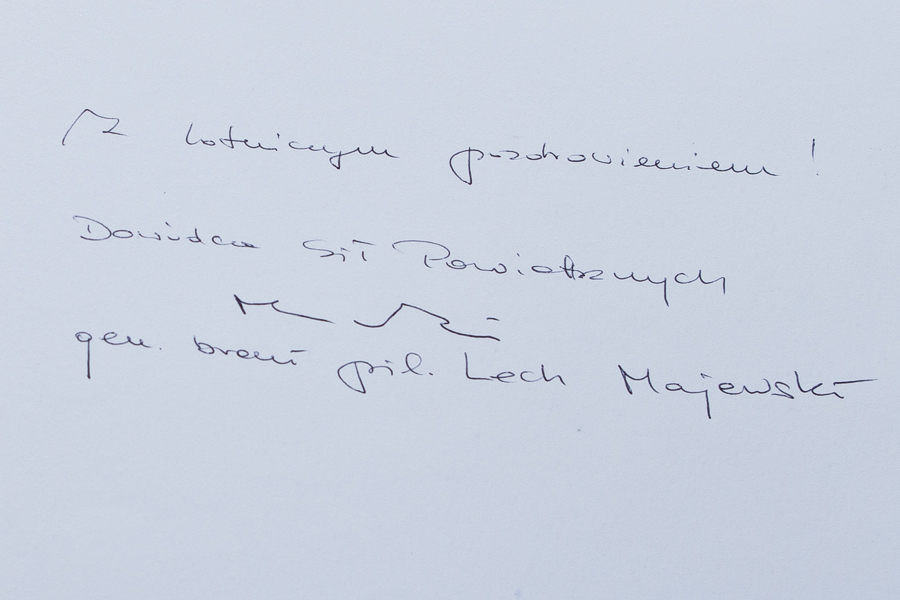 Z lotniczym pozdrowieniem!
Dowódca Sił Powietrznych
gen. broni pil. Lech Majewski